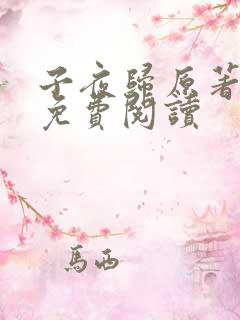 子夜歸原著
免費閱讀
馬西